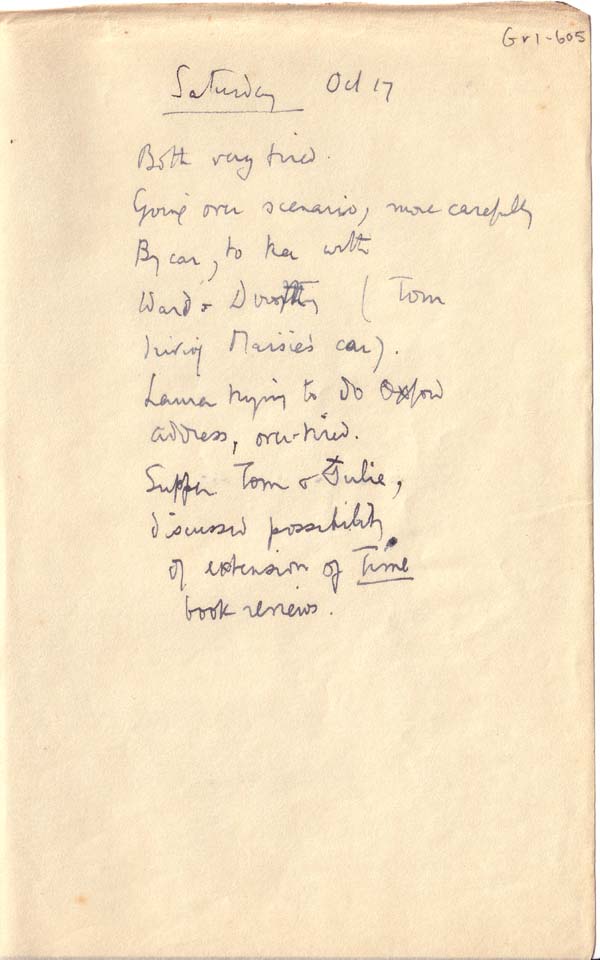 Gr1-605
Saturday Oct 17
Both very tired.
Going over scenario, more carefully
By car, to tea with
Ward & Dorothy (Tom
driving Maisie's car).
Laura trying to do Oxford
address, over-tired.
Supper Tom & Julie,
discussed possibility
of extension of Time
book reviews.